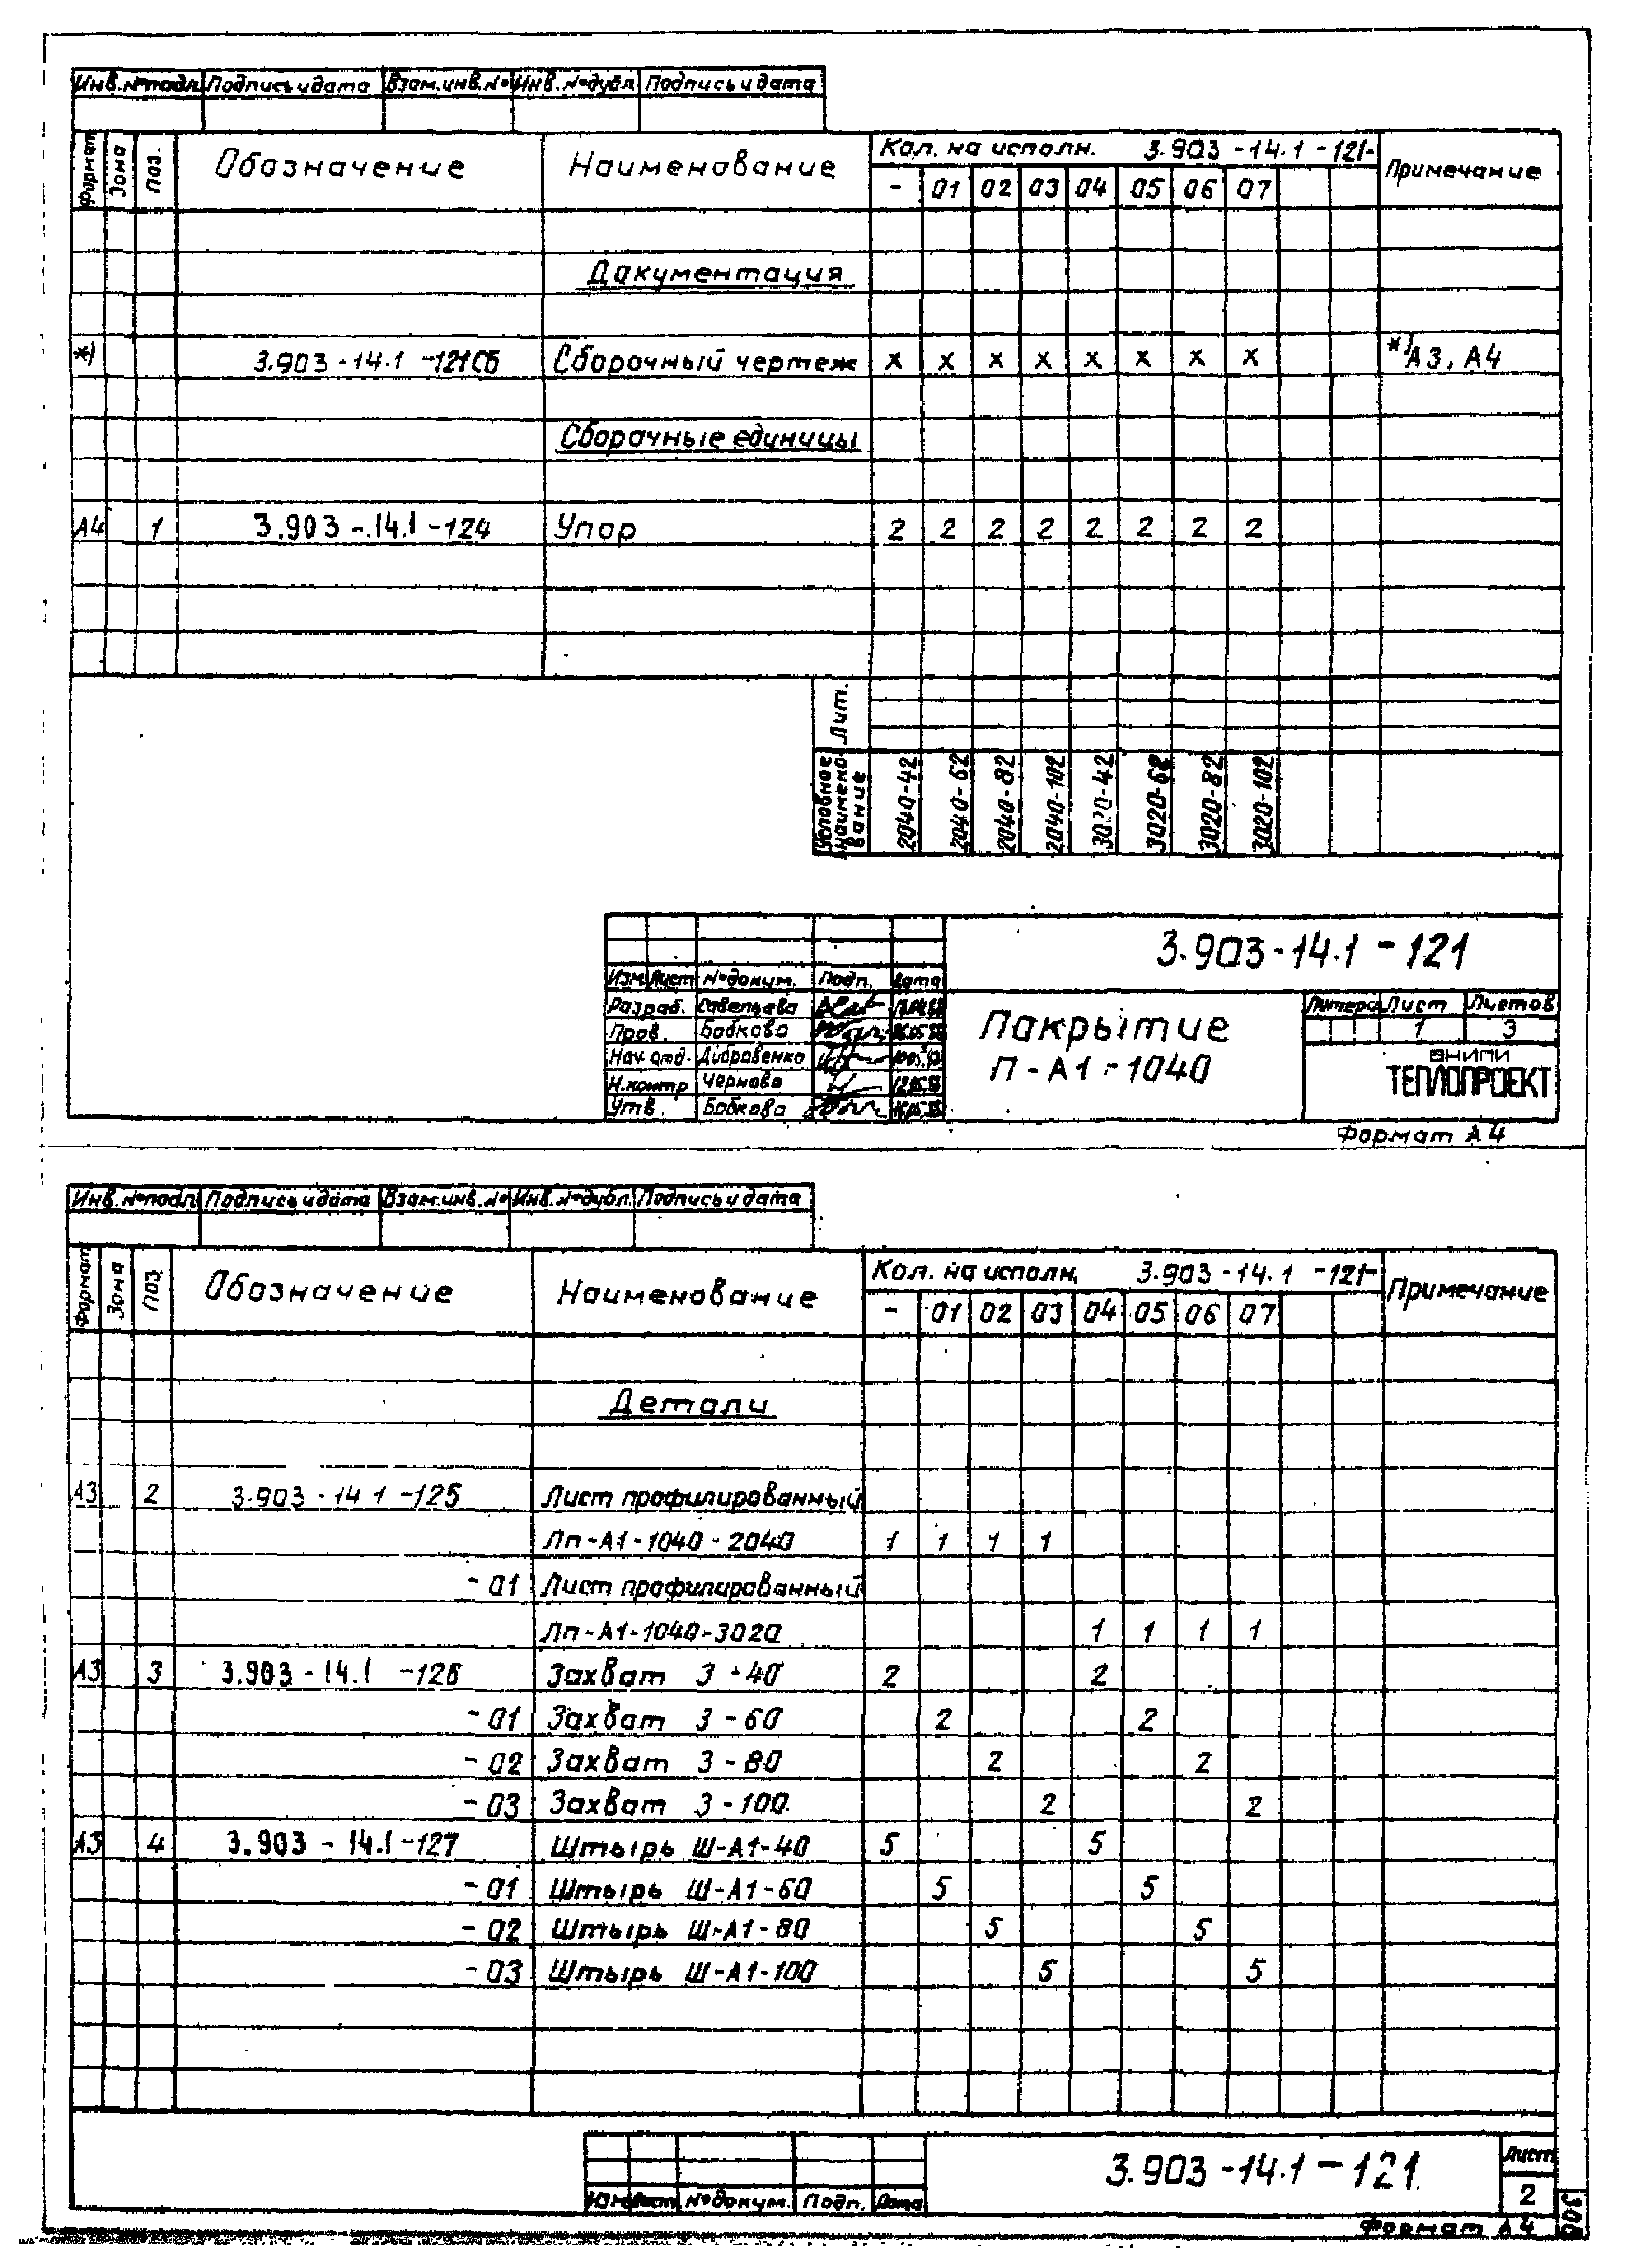 Инв.№подл. Подпись и дата Взам.инв.№ Инв.№дубл. Подпись и дата
Формат Зона Поз. Обозначение Наименование Кол. на исполн. 3.903-14.1-121- Примечание
- 01 02 03 04 05 06 07
Документация
*) 3.903-14.1-121СБ Сборочный чертеж х х х х х х х х *) А3, А4
Сборочные единицы
А4 1 3.903-14.1-124 Упор 2 2 2 2 2 2 2 2
Лит.
Условное наименование 2040-42 2040-62 2040-82 2040-102 3020-42 3020-62 3020-82 3020-102
3.903-14.1-121
Изм Лист №докум. Подп. Дата
Разраб. Савельева
Пров. Бобкова
Нач. отд. Дибровенко
Н.контр Чернова
Утв. Бобкова
Покрытие
П-А1-1040
Литера Лист Листов
1 3
ВНИПИ
ТЕПЛОПРОЕКТ
Формат А4
Инв.№подл. Подпись и дата Взам.инв.№ Инв.№дубл. Подпись и дата
Формат Зона Поз. Обозначение Наименование Кол. на исполн. 3.903-14.1-121- Примечание
- 01 02 03 04 05 06 07
Детали
А3 2 3.903-14 1-125 Лист профилированный
Лп-А1-1040-2040 1 1 1 1
-01 Лист профилированный
Лп-А1-1040-3020 1 1 1 1
А3 3 3.903-14.1-126 Захват З-40 2 2
-01 Захват З-60 2 2
-02 Захват З-80 2 2
-03 Захват З-100. 2 2
А3 4 3.903-14.1-127 Штырь Ш-А1-40 5 5
-01 Штырь Ш-А1-60 5 5
-02 Штырь Ш-А1-80 5 5
-03 Штырь Ш-А1-100 5 5
3.903-14.1-121
Лист
2
Изм Лист №докум. Подп. Дата
Формат А4